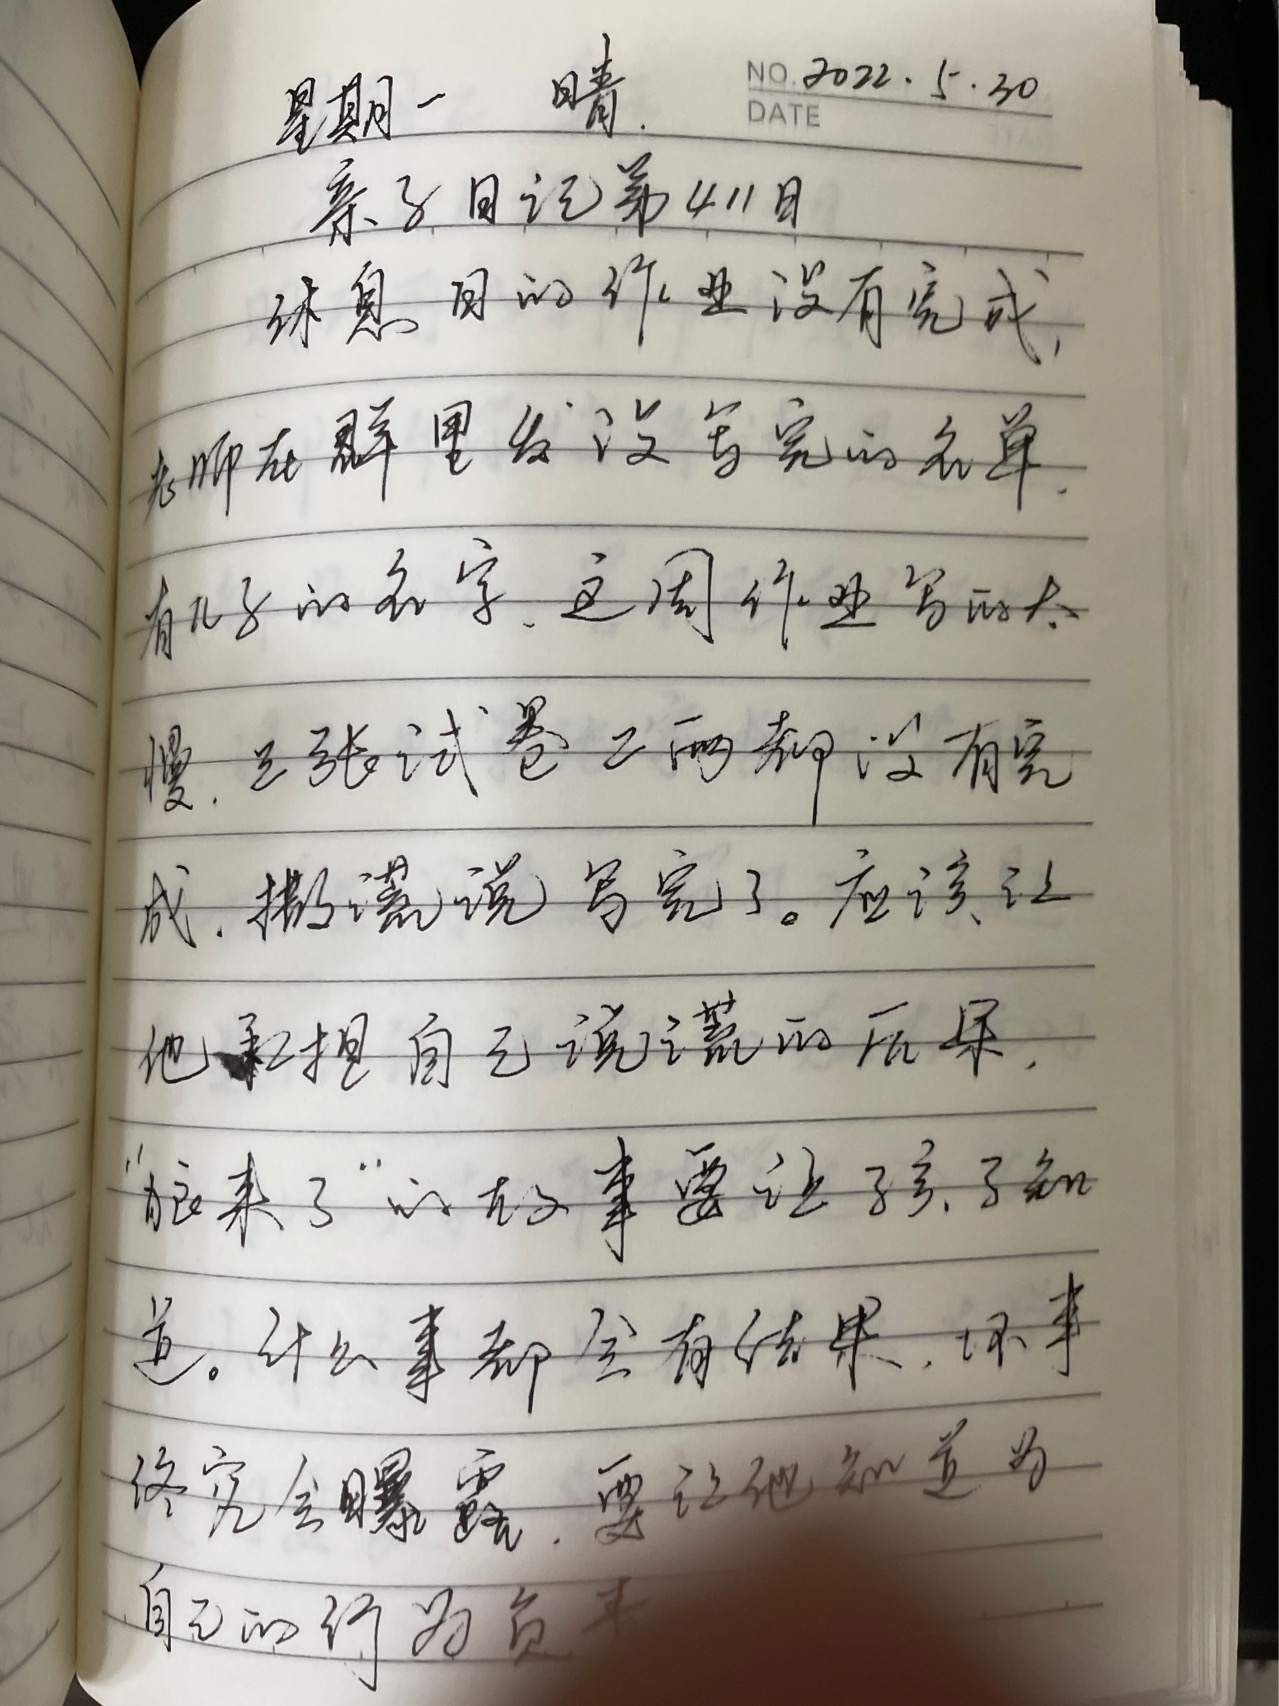 星期一 晴. NO. 2022.5.30
DATE
亲子日记第411日
休息日的作业没有完成,
老师在群里发没写完的名单.
有儿子的名字.这周作业写的太
慢.三张试卷二面都没有完
成.撒谎说写完了。应该让
他承担自己说谎的后果.
"狼来了"的故事要让孩子知
道。什么事都会有结果.坏事
终究会曝露.要让他知道为
自己的行为负